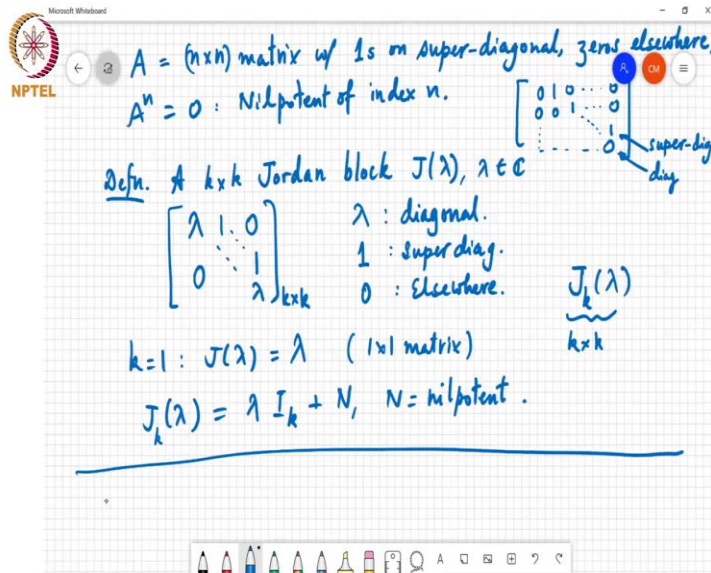 Microsoft Whiteboard
NPTEL
A = (n×n) matrix w/ 1s on super-diagonal, zeros elsewhere,
Aⁿ = 0 : Nilpotent of index n.
0 1 0 ... 0
0 0 1 ... 0
1
0
super-diag
diag
CM
Defn. A k×k Jordan block J(λ), λ ∈ ℂ
[ λ 1 0
0 1
λ ]k×k
λ : diagonal.
1 : Super diag.
0 : Elsewhere.
J_k(λ)
k×k
k=1 : J(λ) = λ (1×1 matrix)
J_k(λ) = λ I_k + N, N = nilpotent.